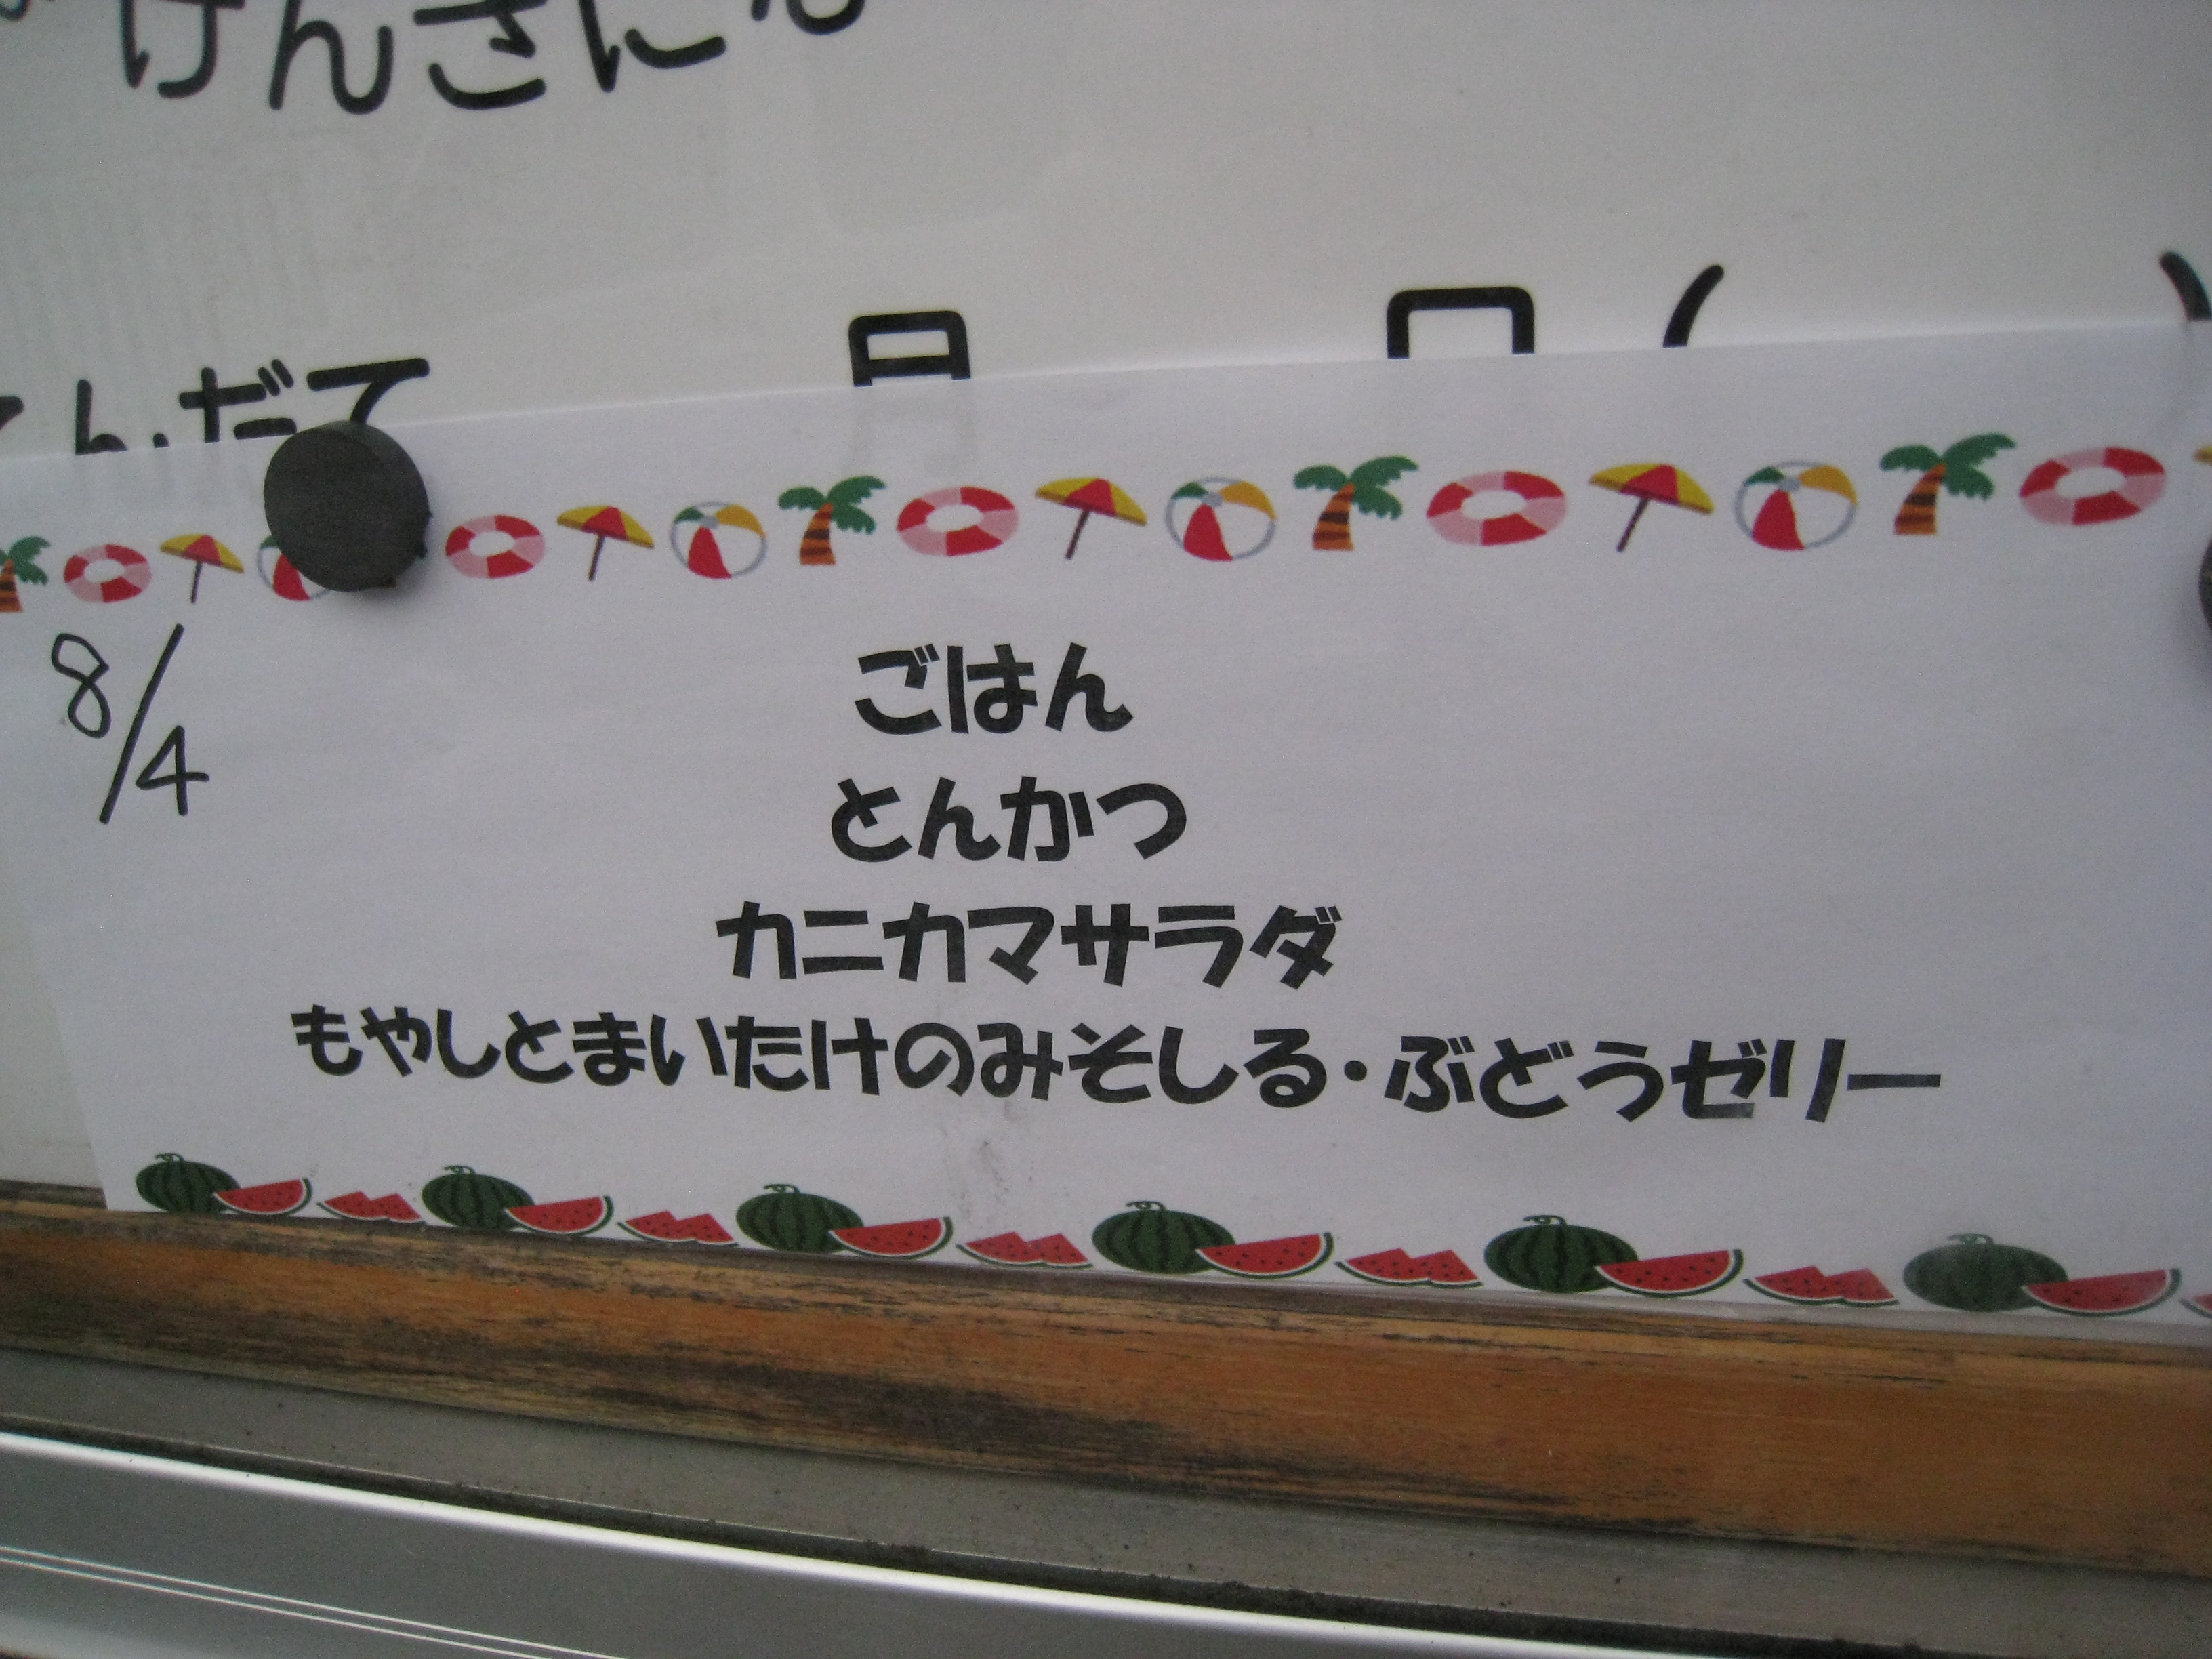 げんきに
んだて 月 日( )
8/4
ごはん
とんかつ
カニカマサラダ
もやしとまいたけのみそしる・ぶどうゼリー